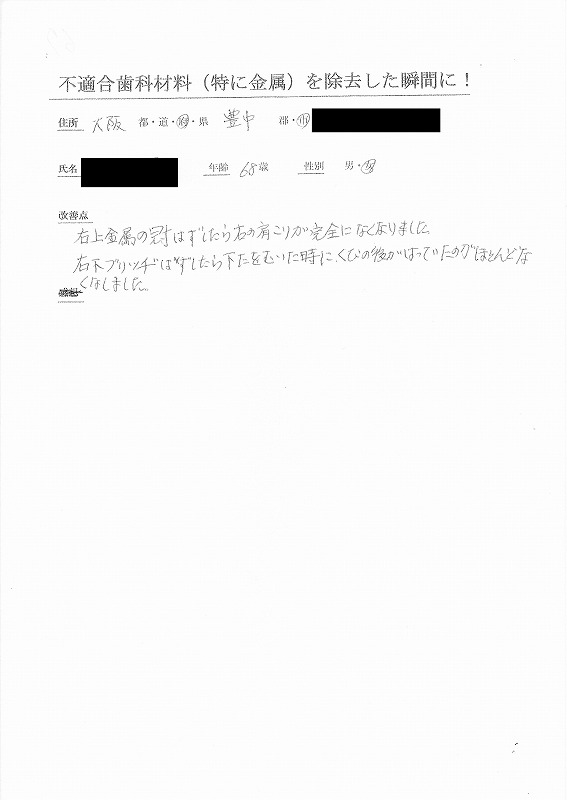 不適合歯科材料（特に金属）を除去した瞬間に！
住所 大阪 都・道・府・県 豊中 郡・市
氏名 年齢 68歳 性別 男・女
改善点
右上金属の冠はずしたら右の肩こりが完全になくなりました
右下ブリッヂはずしたら下をむいた時に、くびの後がはっていたのがほとんどな
くなしました。
感想